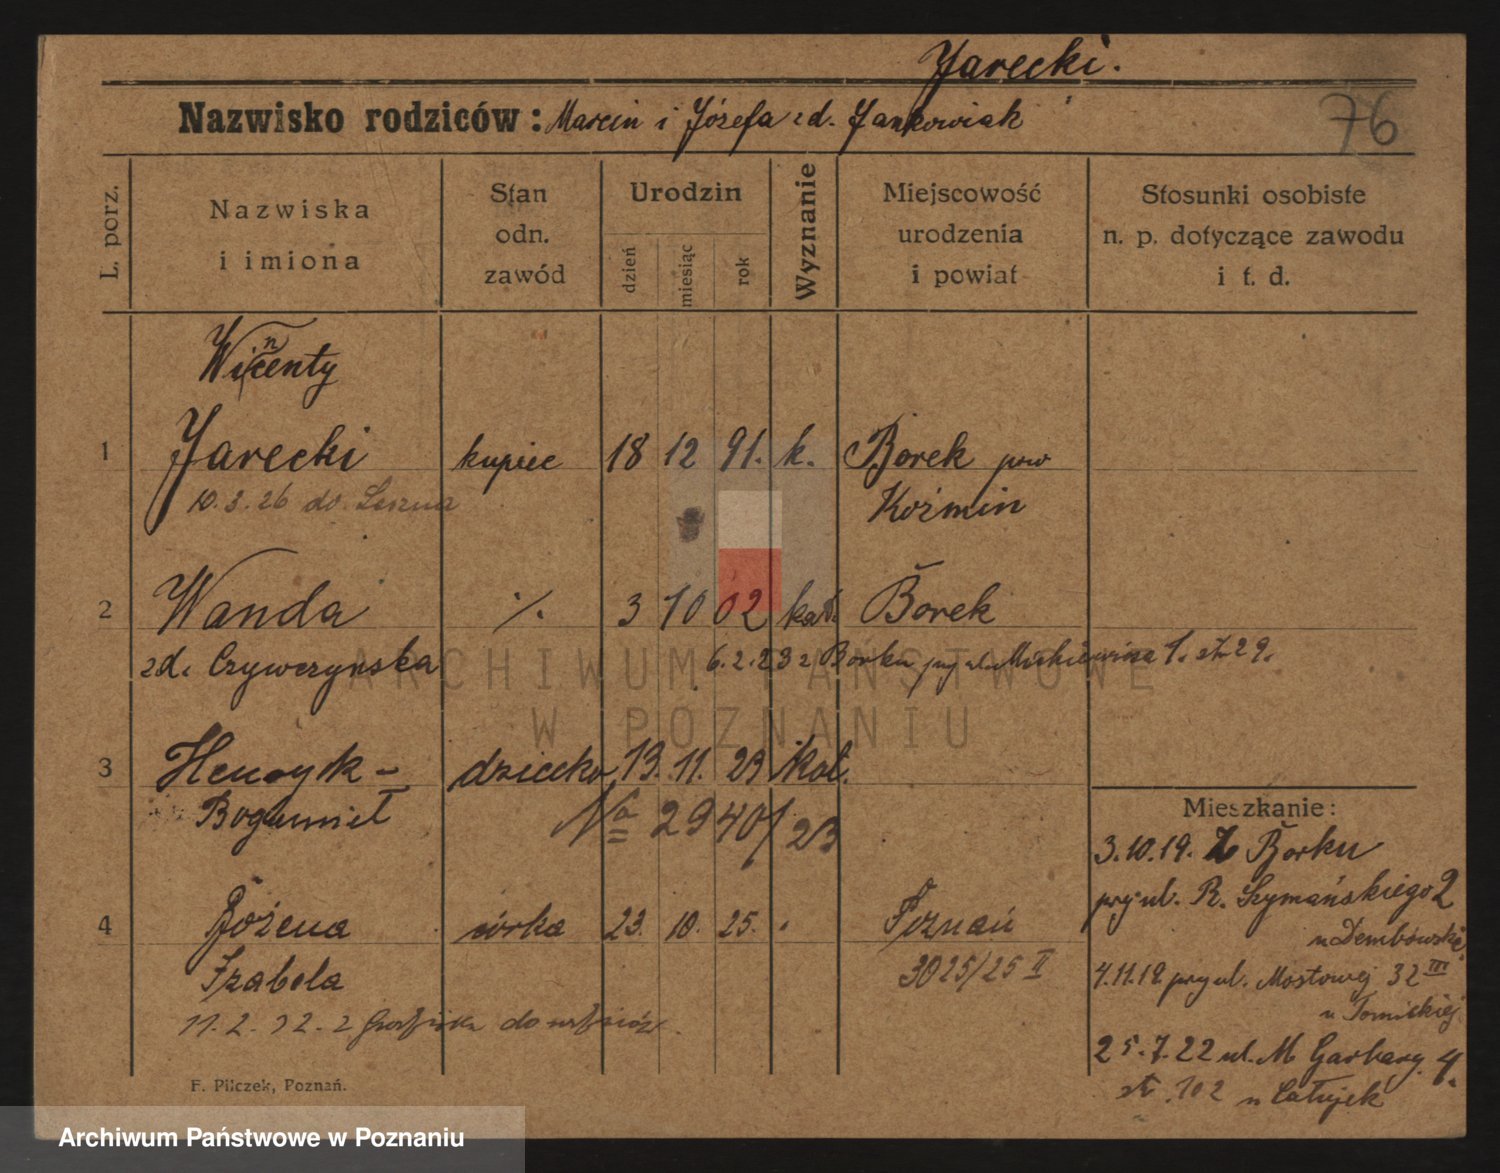 Jarecki.
Nazwisko rodziców: Marcin i Józefa zd. Jankowiak
76
L. porz.
Nazwiska i imiona
Stan odn. zawód
Urodzin
dzień
miesiąc
rok
Wyznanie
Miejscowość urodzenia i powiat
Stosunki osobiste n. p. dotyczące zawodu i t. d.
Wincenty
1 Jarecki kupiec 18 12 91. k. Borek pow
10.3.26 do Leszna Koźmin
2 Wanda ./. 3 10 02 kat. Borek
zd. Czywczynska 6.2.23 z Borku przy ul. Mickiewicza 1. str 29.
3 Henryk - dziecko 13. 11. 23 kat.
Bogumił No 2940/23
4 Bożena córka 23. 10. 25. " Poznań
Izabela 3025/25 II
11.2.32. z do
Mieszkanie:
3.10.19. Z Borku
przy ul. R. Szymańskiego 2
u Dembowskiej
4.11.19 przy ul. Mostowej 32 III
u Tomickiej
25.7.22 ul. M Garbary 4.
str. 102 u
F. Pilczek, Poznań.
ARCHIWUM PAŃSTWOWE
W POZNANIU
Archiwum Państwowe w Poznaniu